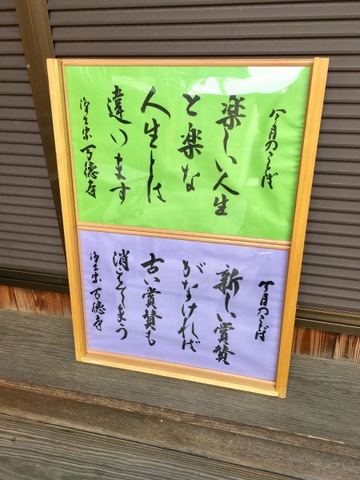 今月のことば
楽しい人生
と楽な
人生とは
違います
浄土宗 万徳寺
今月のことば
新しい賞賛
がなければ
古い賞賛も
消えてしまう
浄土宗 万徳寺